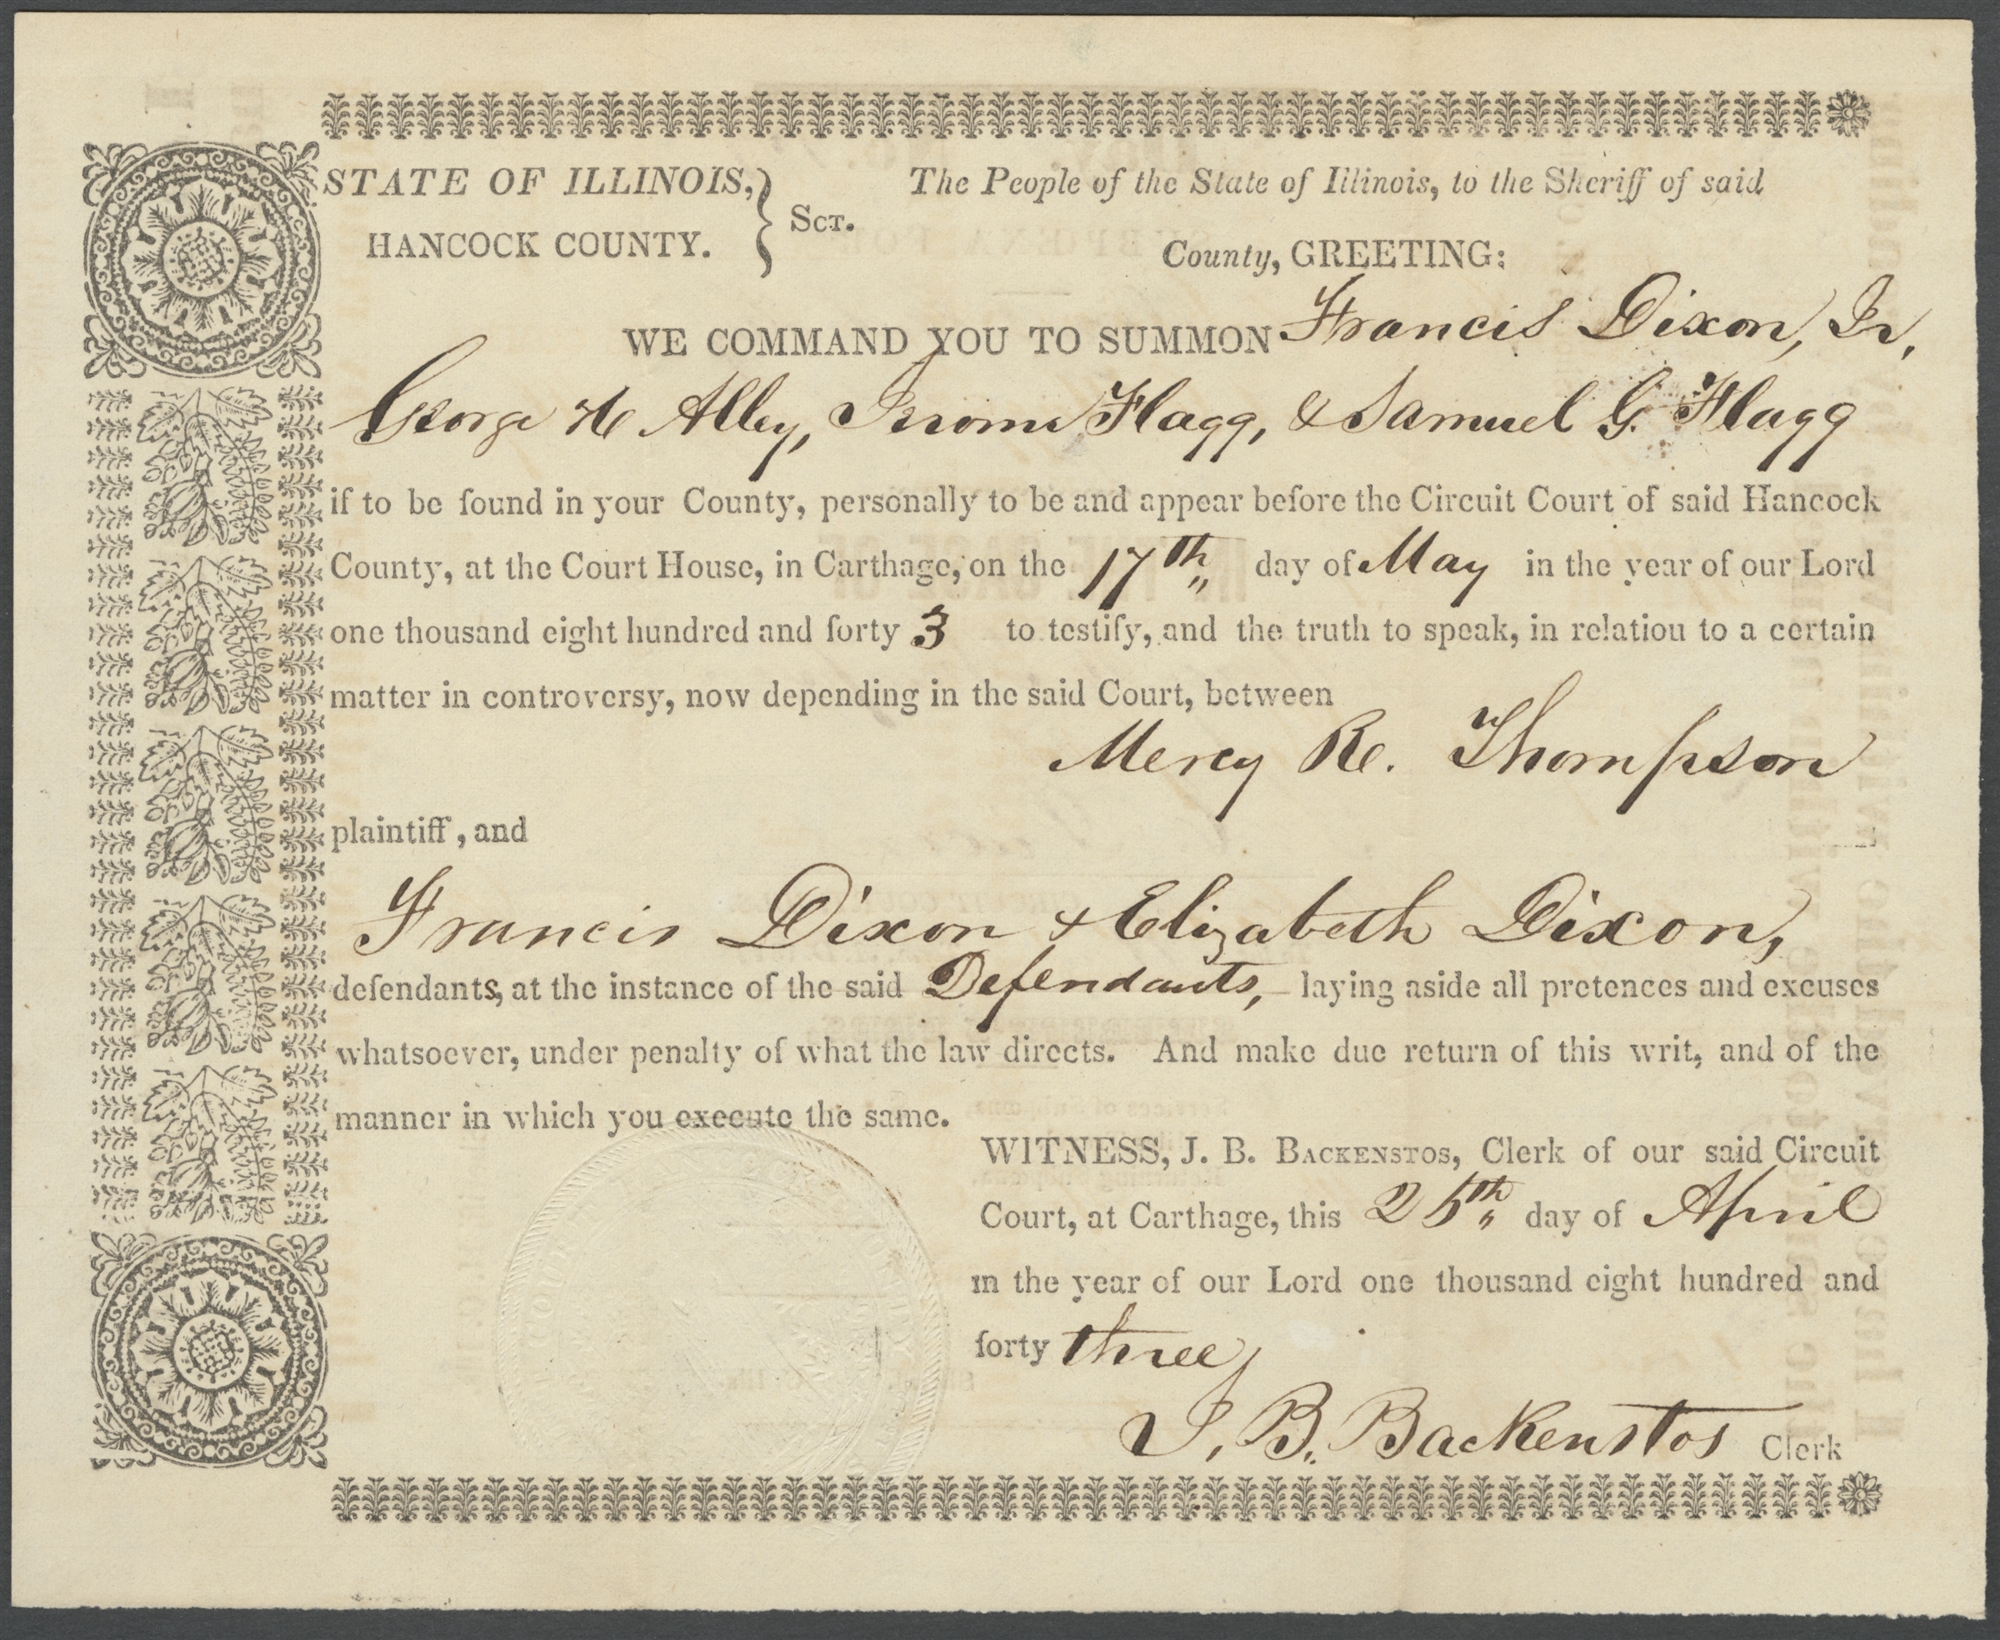 STATE OF ILLINOIS,
HANCOCK COUNTY.
} Sct.
The People of the State of Illinois, to the Sheriff of said
County, GREETING:
WE COMMAND YOU TO SUMMON Francis Dixon, Jr,
George H Alley, Jerome Flagg, & Samuel G. Flagg
if to be found in your County, personally to be and appear before the Circuit Court of said Hancock
County, at the Court House, in Carthage, on the 17th day of May in the year of our Lord
one thousand eight hundred and forty 3 to testify, and the truth to speak, in relation to a certain
matter in controversy, now depending in the said Court, between
Mercy R. Thompson
plaintiff, and
Francis Dixon & Elizabeth Dixon,
defendants, at the instance of the said Defendants, laying aside all pretences and excuses
whatsoever, under penalty of what the law directs. And make due return of this writ, and of the
manner in which you execute the same.
WITNESS, J. B. BACKENSTOS, Clerk of our said Circuit
Court, at Carthage, this 25th day of April
in the year of our Lord one thousand eight hundred and
forty three
J. B. Backenstos Clerk